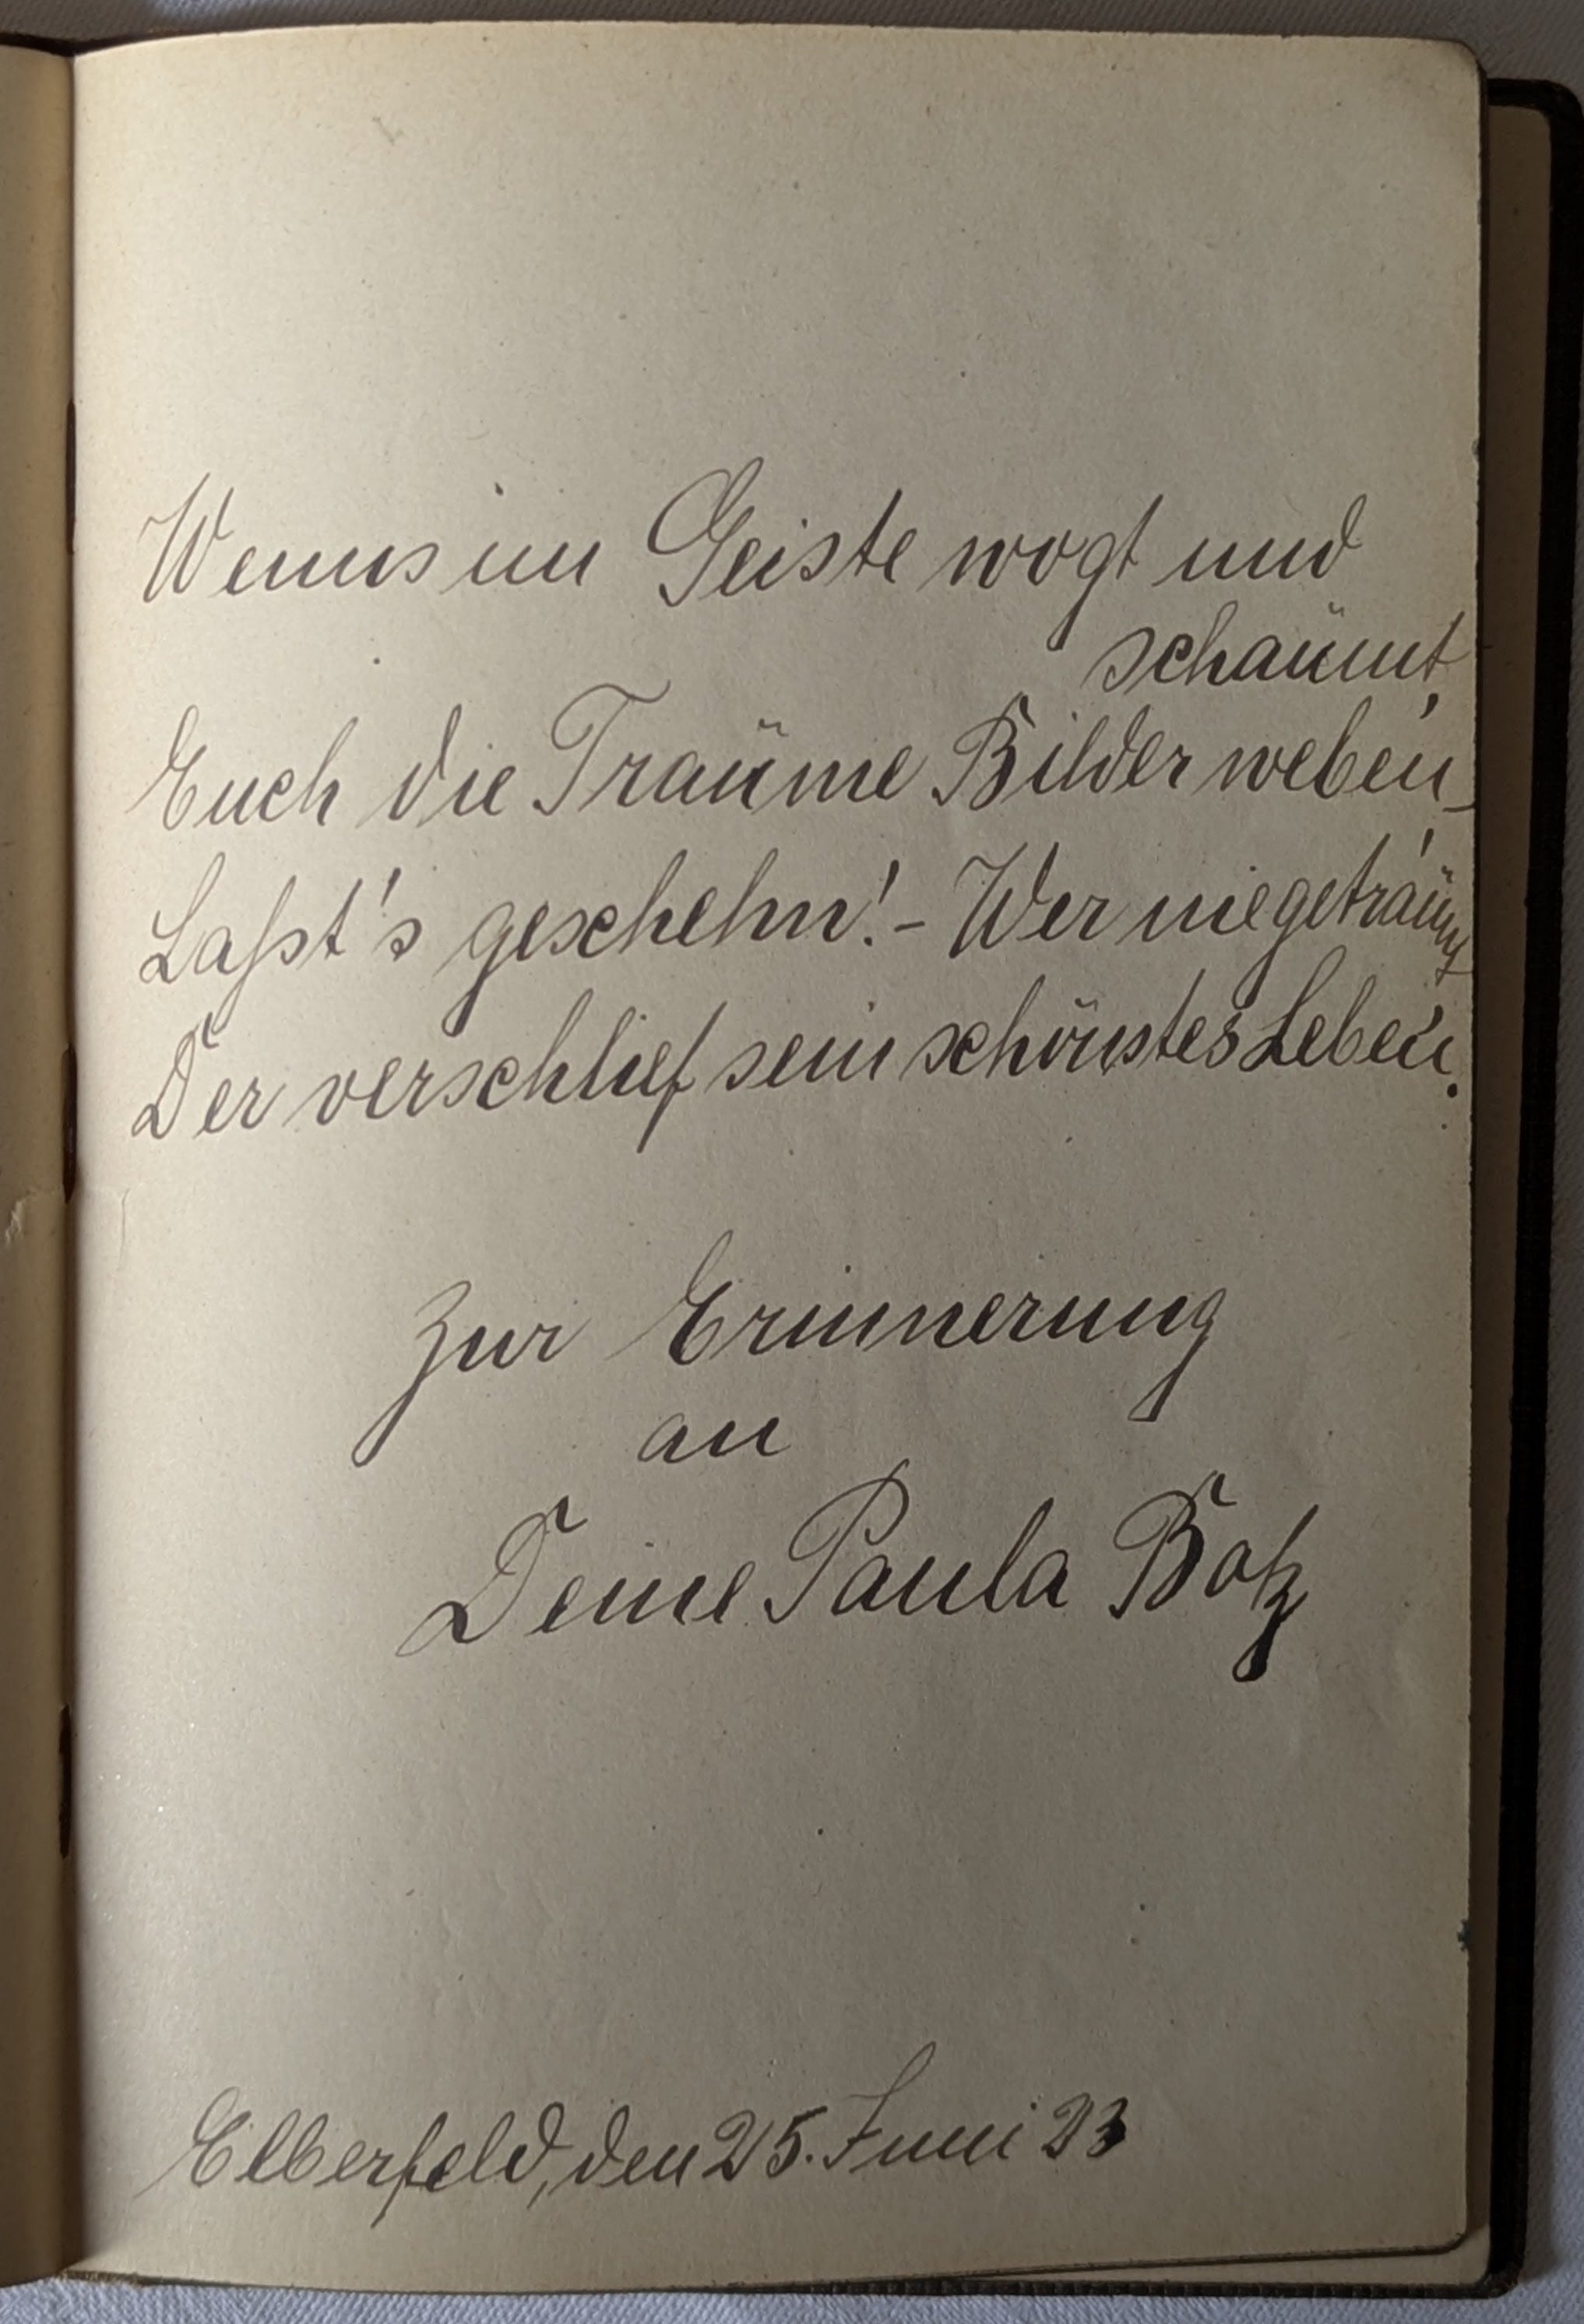 Wenns im Geiste wogt und
schäumt,
Euch die Träume Bilder weben,
Laßt's geschehn! - Wer nie geträumt
Der verschlief sein schönstes Leben.
Zur Erinnerung
an
Deine Paula Botz
Elberfeld, den 25. Juni 23